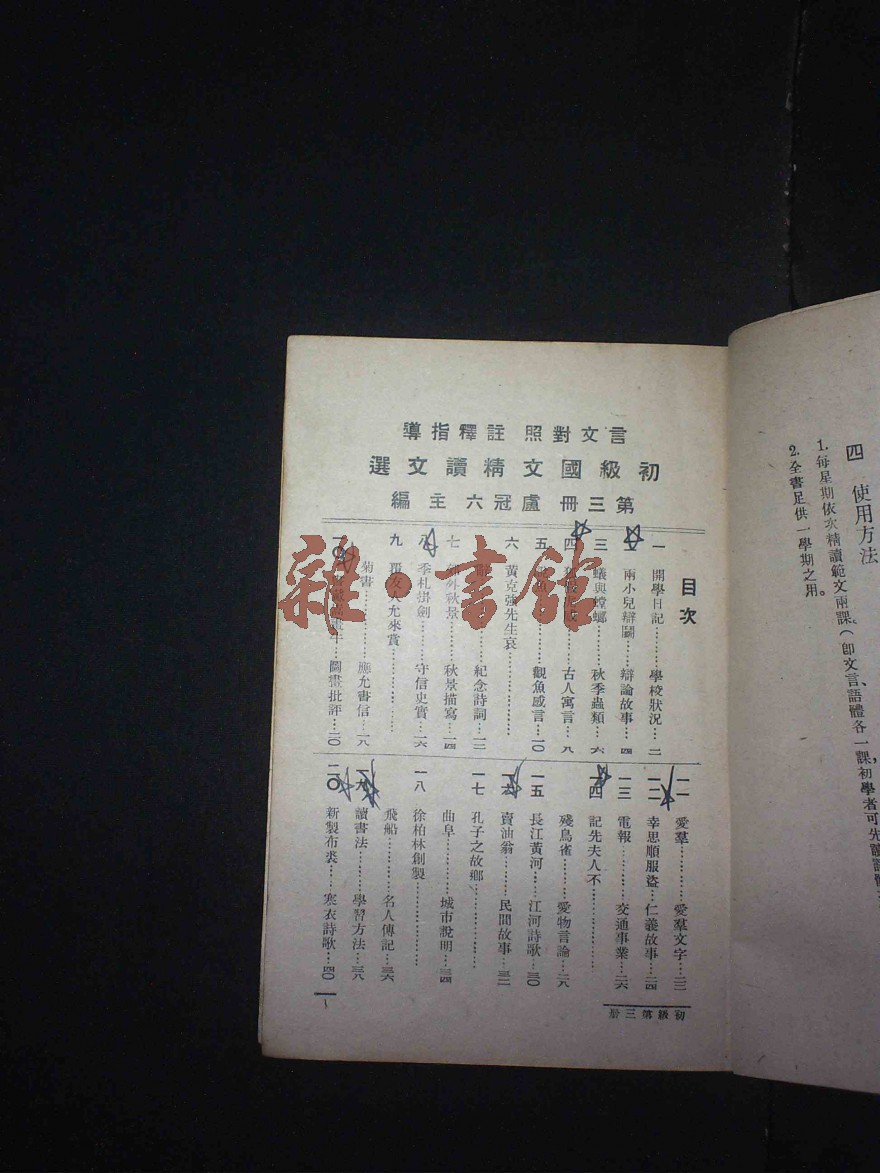 四　使用方法
1. 每星期依次精讀範文兩課（卽文言、語體各一課，初學者可先讀語體
2. 全書足供一學期之用。
言文對照 註釋指導
初級國文精讀文選
第三冊 盧冠六 主編
目次
一　開學日記……學校狀況…二
二　兩小兒辯鬬……辯論故事…四
三　蟻與螳螂……秋季蟲類…六
四　……古人寓言…八
五　……觀魚感言…一〇
六　黃克強先生哀
……紀念詩詞…一二
七　郊外秋景……秋景描寫…一四
八　季札掛劍……守信史實…一六
九　覆友人允來賞
菊書……應允書信…一八
一〇　……圖畫批評…二〇
一一　愛羣……愛羣文字…二二
一二　幸思順服盜…仁義故事…二四
一三　電報……交通事業…二六
一四　記先夫人不
殘鳥雀……愛物言論…二八
一五　長江黃河……江河詩歌…三〇
一六　賣油翁……民間故事…三二
一七　孔子之故鄉
曲阜……城市說明…三四
一八　徐柏林創製
飛船……名人傳記…三六
一九　讀書法……學習方法…三八
二〇　新製布裘……寒衣詩歌…四〇
初級第三册
一
雜·書館